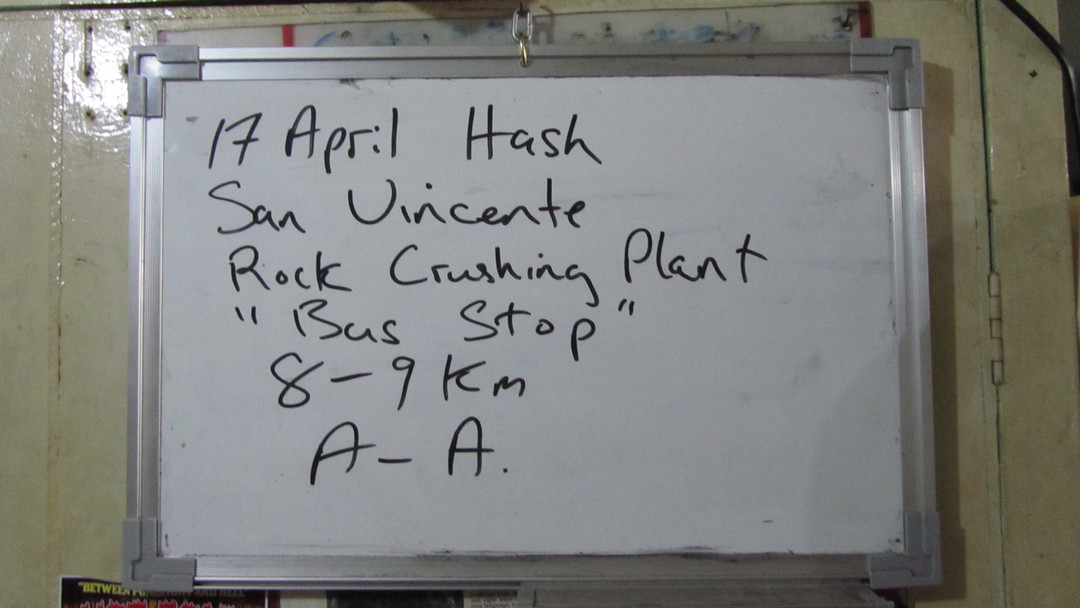 17 April Hash
San Vincente
Rock Crushing Plant
"Bus Stop"
8-9 Km
A-A.
BETWEEN AND HELL